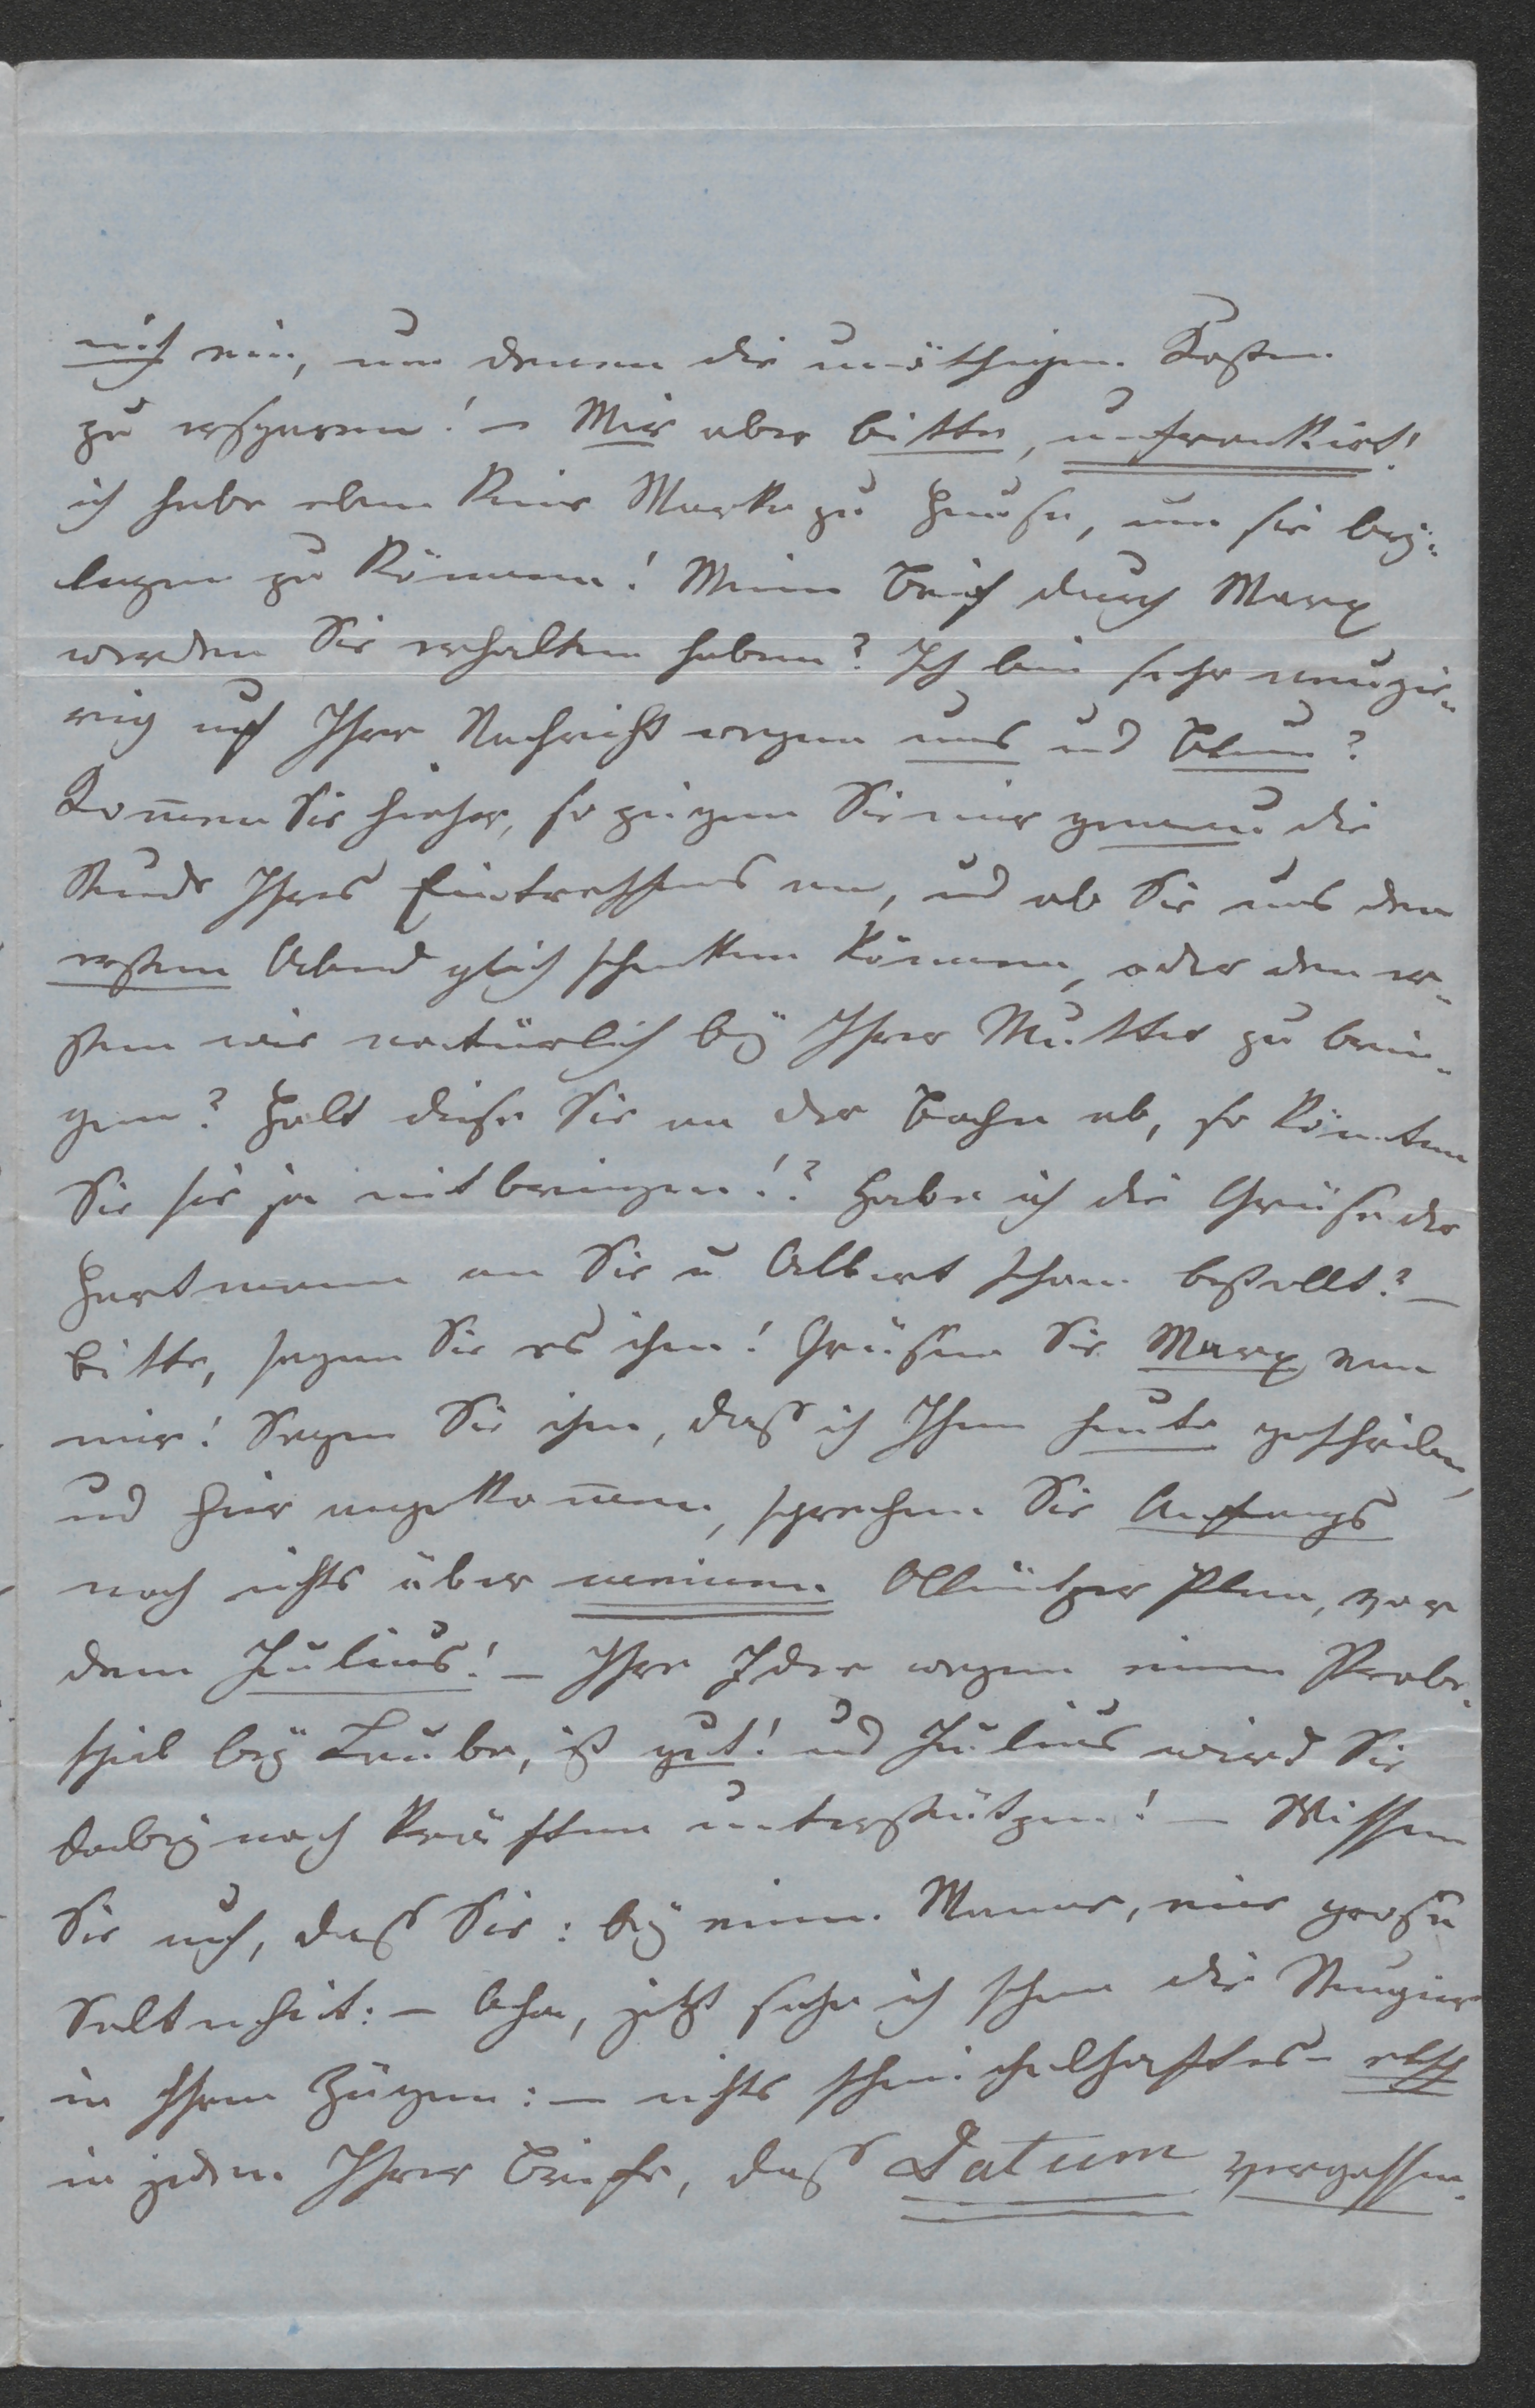 mich ein, um denen die unöthigen Kosten
zu ersparen! – Mir aber bitte, unfrankirt!
ich habe eben keine Marke zu Hause, um sie bey-
legen zu können! Meinen Brief durch Marx
werden Sie erhalten haben? Ich bin sehr neugie-
rig auf Ihre Nachricht wegen uns und Blum?
Kom̅en Sie hieher, so zeigen Sie mir genau die
Stunde Ihres Eintreffens an, und ob Sie uns den
ersten Abend gleich schenken können, oder den er-
sten wie natürlich bey Ihrer Mutter zu brin-
gen? Holt diese Sie an der Bahn ab, so könnten
Sie sie ja mitbringen!? Habe ich die Grüße der
Hartmann an Sie u Albert schon bestellt? –
bitte, sagen Sie es ihm! Grüßen Sie Marx von
mir! Sagen Sie ihm, daß ich Ihnen heute geschrieben,
und hier angekom̅en, sprechen Sie Anfangs
noch nichts über meinen Ollmützer Plan, vor
dem Julius! – Ihre Idee wegen einem Probe-
spiel bey Laube, ist gut! und Julius wird Sie
dabey nach Kräften unterstützen! – Wissen
Sie auch, daß Sie: bey einem Manne, eine große
Seltenheit: – Aha, jetzt sehe ich schon die Neugier
in Ihren Zügen: – nichts schmeichelhaftes –
in jedem Ihrer Briefe, daß Datum vergessen.